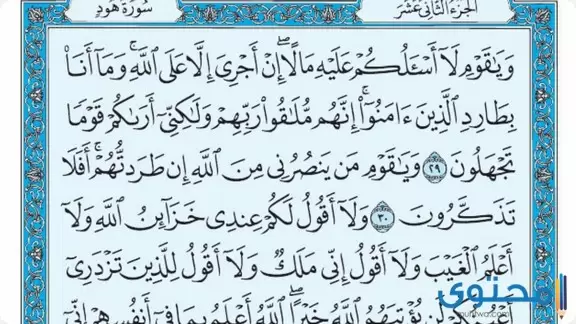 الجزء الثاني عشر
سورة هود
وَيَٰقَوْمِ لَآ أَسْـَٔلُكُمْ عَلَيْهِ مَالًا ۖ إِنْ أَجْرِىَ إِلَّا عَلَى ٱللَّهِ ۚ وَمَآ أَنَا۠
بِطَارِدِ ٱلَّذِينَ ءَامَنُوٓا۟ ۚ إِنَّهُم مُّلَٰقُوا۟ رَبِّهِمْ وَلَٰكِنِّىٓ أَرَىٰكُمْ قَوْمًا
تَجْهَلُونَ ٢٩ وَيَٰقَوْمِ مَن يَنصُرُنِى مِنَ ٱللَّهِ إِن طَرَدتُّهُمْ ۚ أَفَلَا
تَذَكَّرُونَ ٣٠ وَلَآ أَقُولُ لَكُمْ عِندِى خَزَآئِنُ ٱللَّهِ وَلَآ
أَعْلَمُ ٱلْغَيْبَ وَلَآ أَقُولُ إِنِّى مَلَكٌ وَلَآ أَقُولُ لِلَّذِينَ تَزْدَرِىٓ
لَن يُؤْتِيَهُمُ ٱللَّهُ خَيْرًا ۖ ٱللَّهُ أَعْلَمُ بِمَا فِىٓ أَنفُسِهِمْ ۖ إِنِّىٓ
محتوى